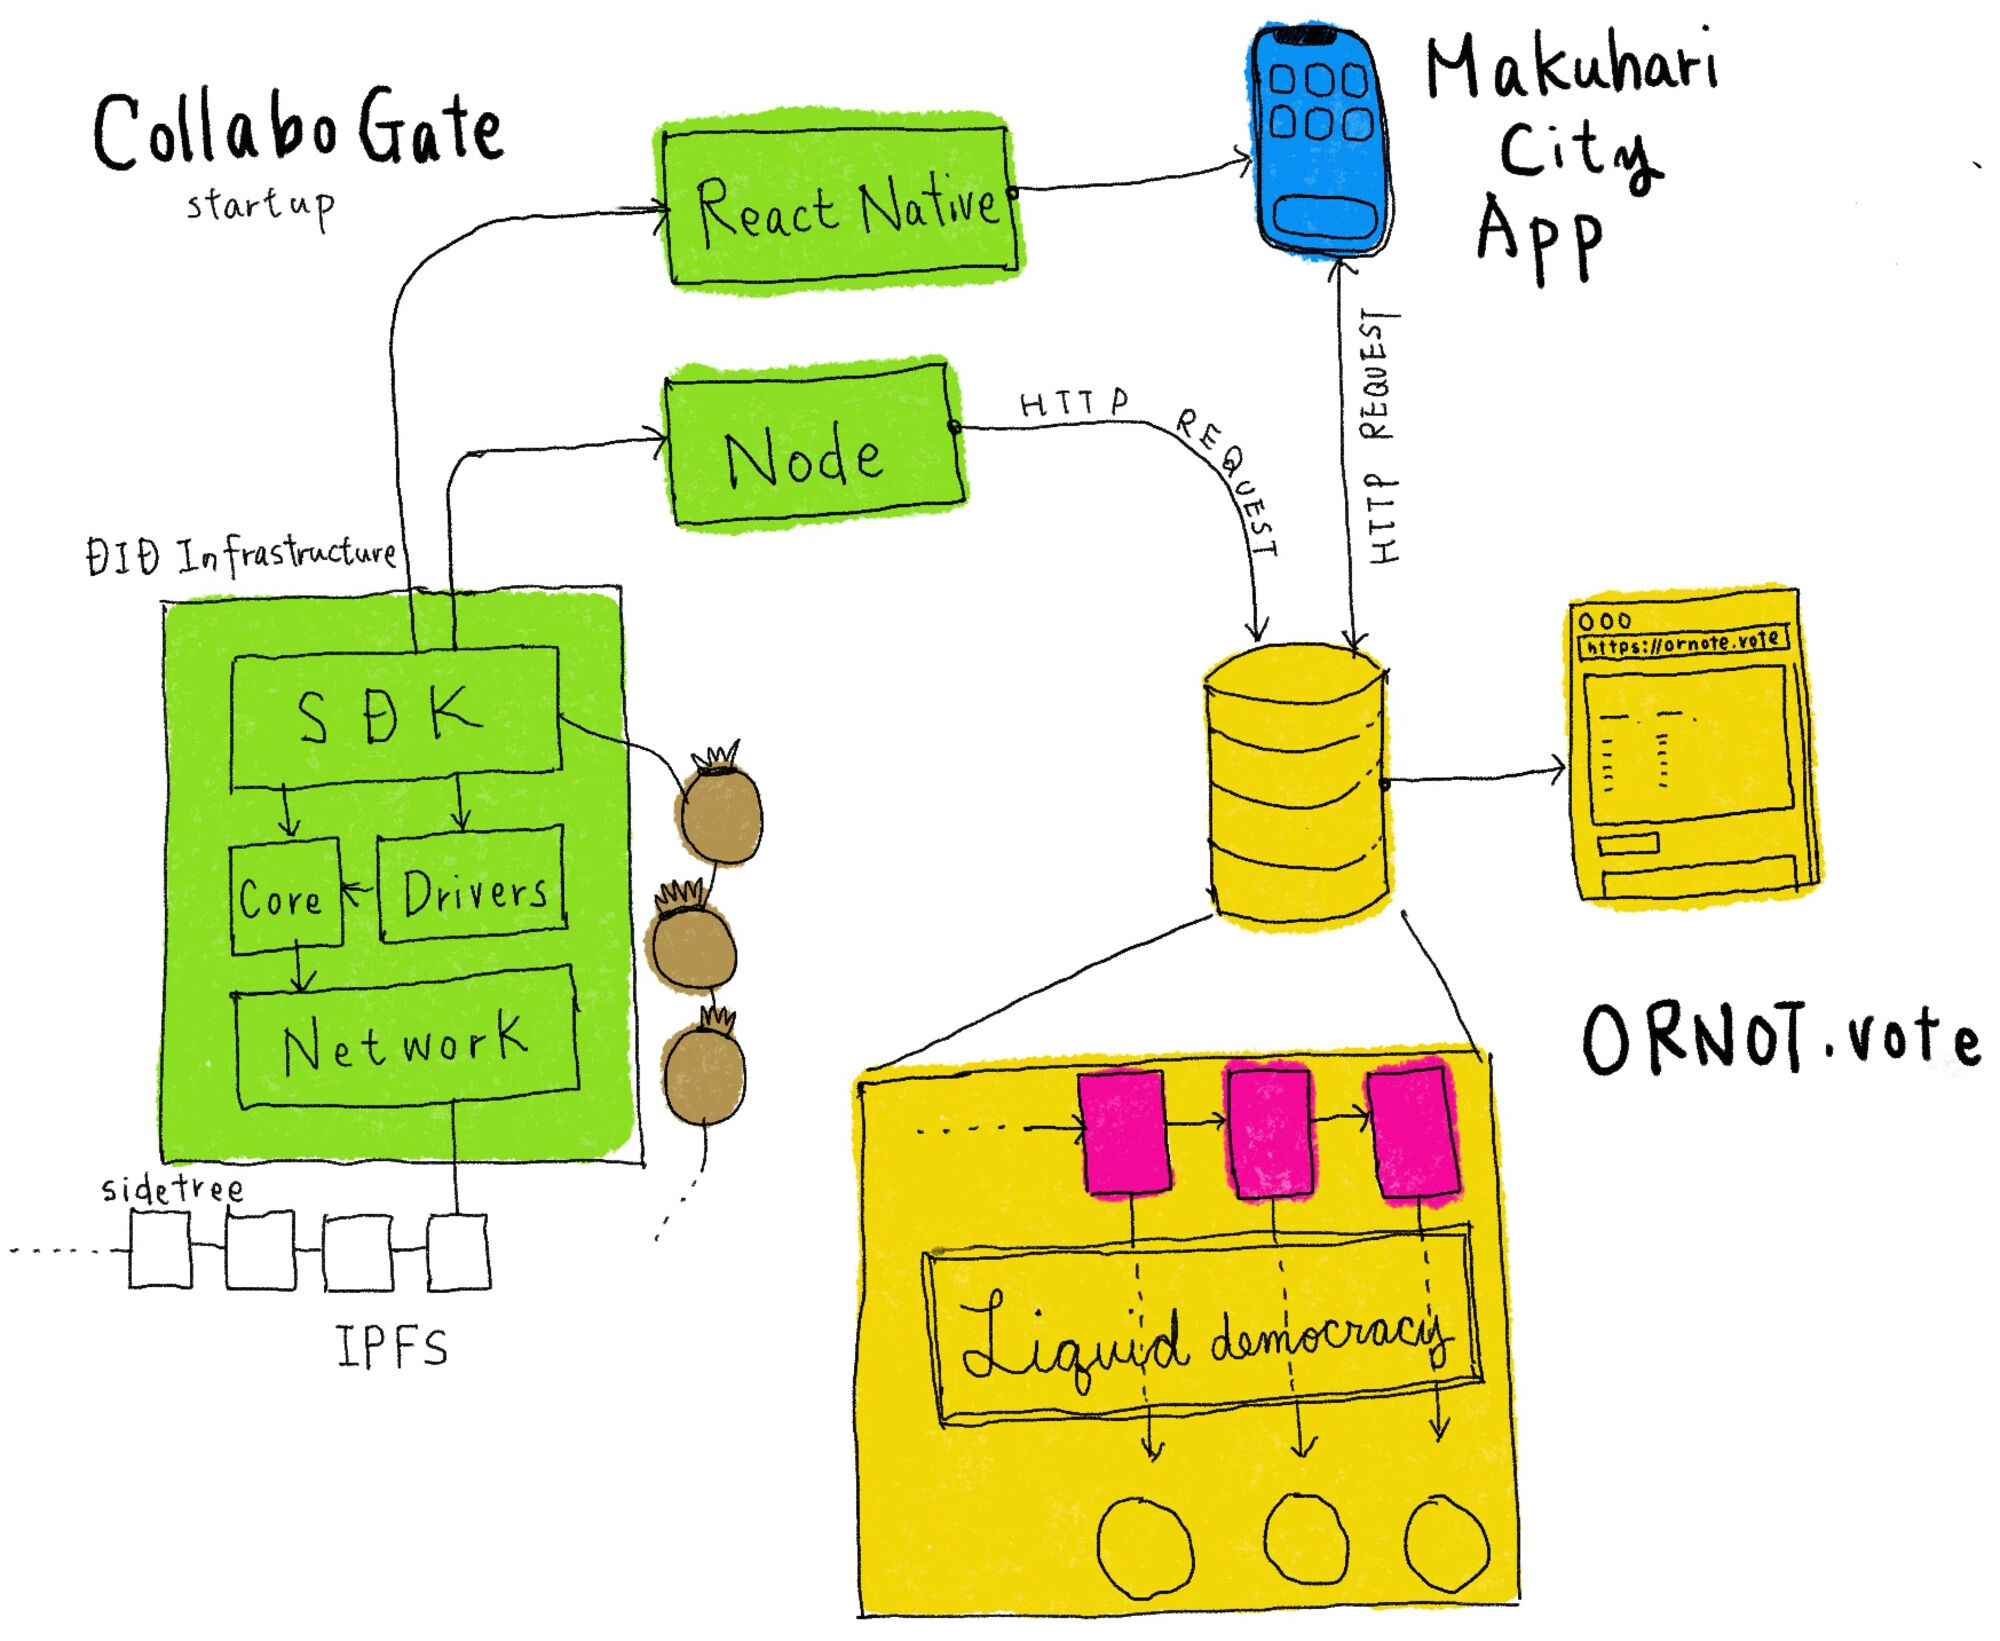 Collabo Gate
startup
React Native
Makuhari
City
App
Node
HTTP REQUEST
HTTP REQUEST
ĐIĐ Infrastructure
SĐK
Core
Drivers
Network
https://ornote.vote
ORNOT.vote
sidetree
IPFS
Liquid democracy